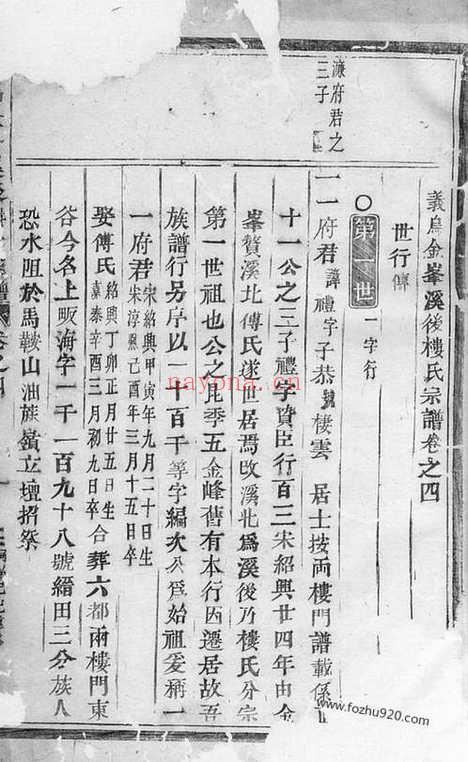 義烏金峯溪後樓氏宗譜卷之四
世行傳
第一世 一字行
濂府君之
三子
一一府君諱禮字子恭號樓雲 居士按兩樓門譜載係
十一公之三子禮字貢臣行百三宋紹興廿四年由金
峯贅溪北傅氏遂世居焉改溪北爲溪後乃樓氏分宗
第一世祖也公之昆季五金峰舊有本行因遷居故吾
族譜行另序以一十百千等字編次公爲始祖爰稱一
一府君 宋紹興甲寅年九月二十日生
宋淳熙己酉年三月十五日卒
娶傅氏 紹興丁卯正月廿五日生
嘉泰辛酉三月初九日卒 合葬六都兩樓門東
谷今名上畈海字一千一百九十八號縉田三分族人
恐水阻於馬鞍山油族嶺立壇招祭
nayona.cn
www.fozhu920.com